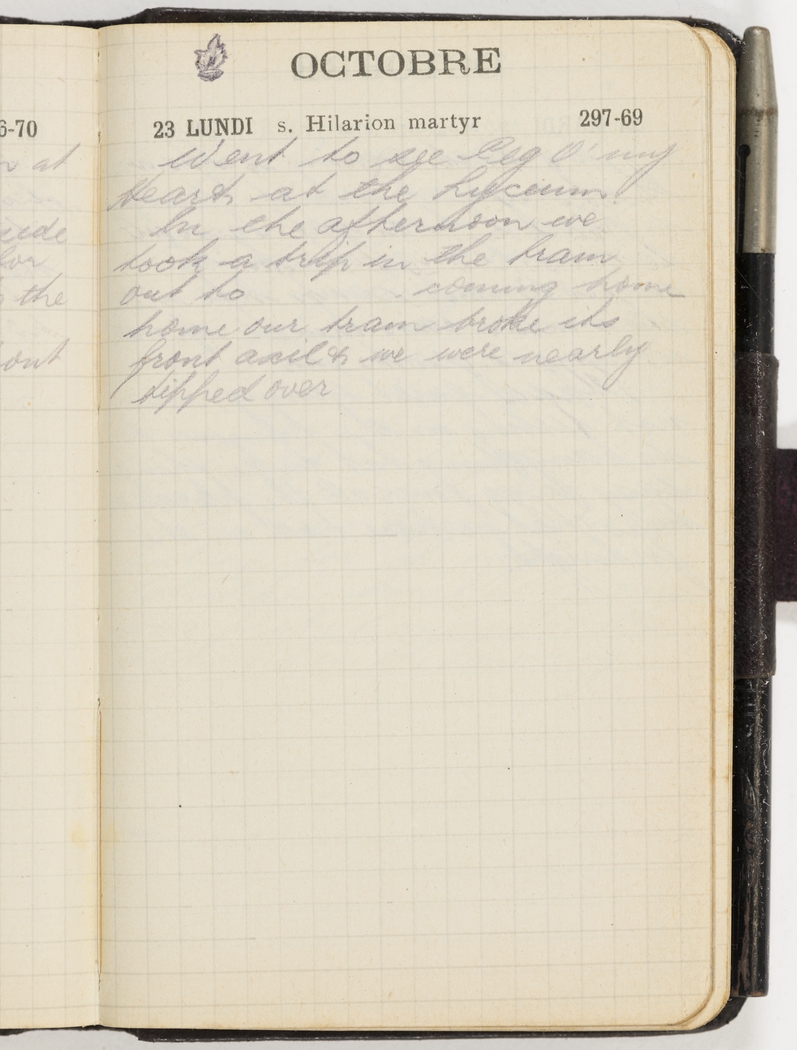 6-70
at
the
out
OCTOBRE
23 LUNDI s. Hilarion martyr 297-69
Went to see Peg O' my
Heart at the Lyceum.
In the afternoon we
took a trip in the tram
out to coming home
home our tram broke its
front axil & we were nearly
tipped over